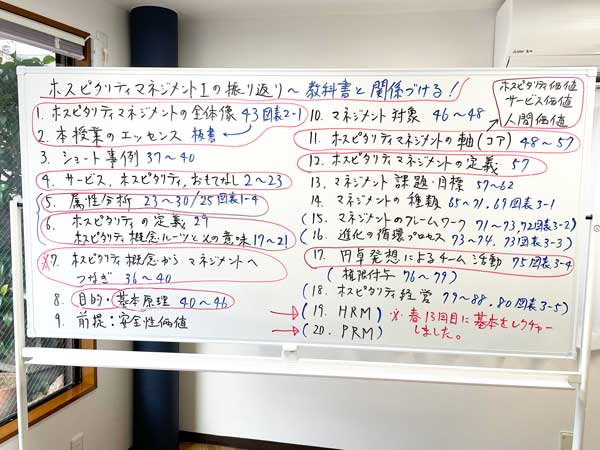 ホスピタリティマネジメントIの振り返り～教科書と関係づける！
ホスピタリティ価値
サービス価値
人間価値
1. ホスピタリティマネジメントの全体像 43図表2-1
2. 本授業のエッセンス 板書
3. ショート事例 37～40
4. サービス、ホスピタリティ、おもてなし 2～23
5. 属性分析 23～30/25図表1-4
6. ホスピタリティの定義 29
ホスピタリティ概念ルーツとその意味 17～21
※7. ホスピタリティ概念からマネジメントへ
つなぎ 36～40
8. 目的・基本原理 40～46
9. 前提：安全性価値
10. マネジメント対象 46～48
11. ホスピタリティマネジメントの軸(コア) 48～57
12. ホスピタリティマネジメントの定義 57
13. マネジメント課題・目標 57～62
14. マネジメントの種類 65～71、69図表3-1
(15. マネジメントのフレームワーク 71～73,72図表3-2)
(16. 進化の循環プロセス 73～74、73図表3-3)
17. 円卓発想によるチーム活動 75図表3-4
(権限付与 76～79)
(18. ホスピタリティ経営 79～88、80図表3-5)
(19. HRM) ※春13回目に基本をレクチャー
(20. PRM) しました。